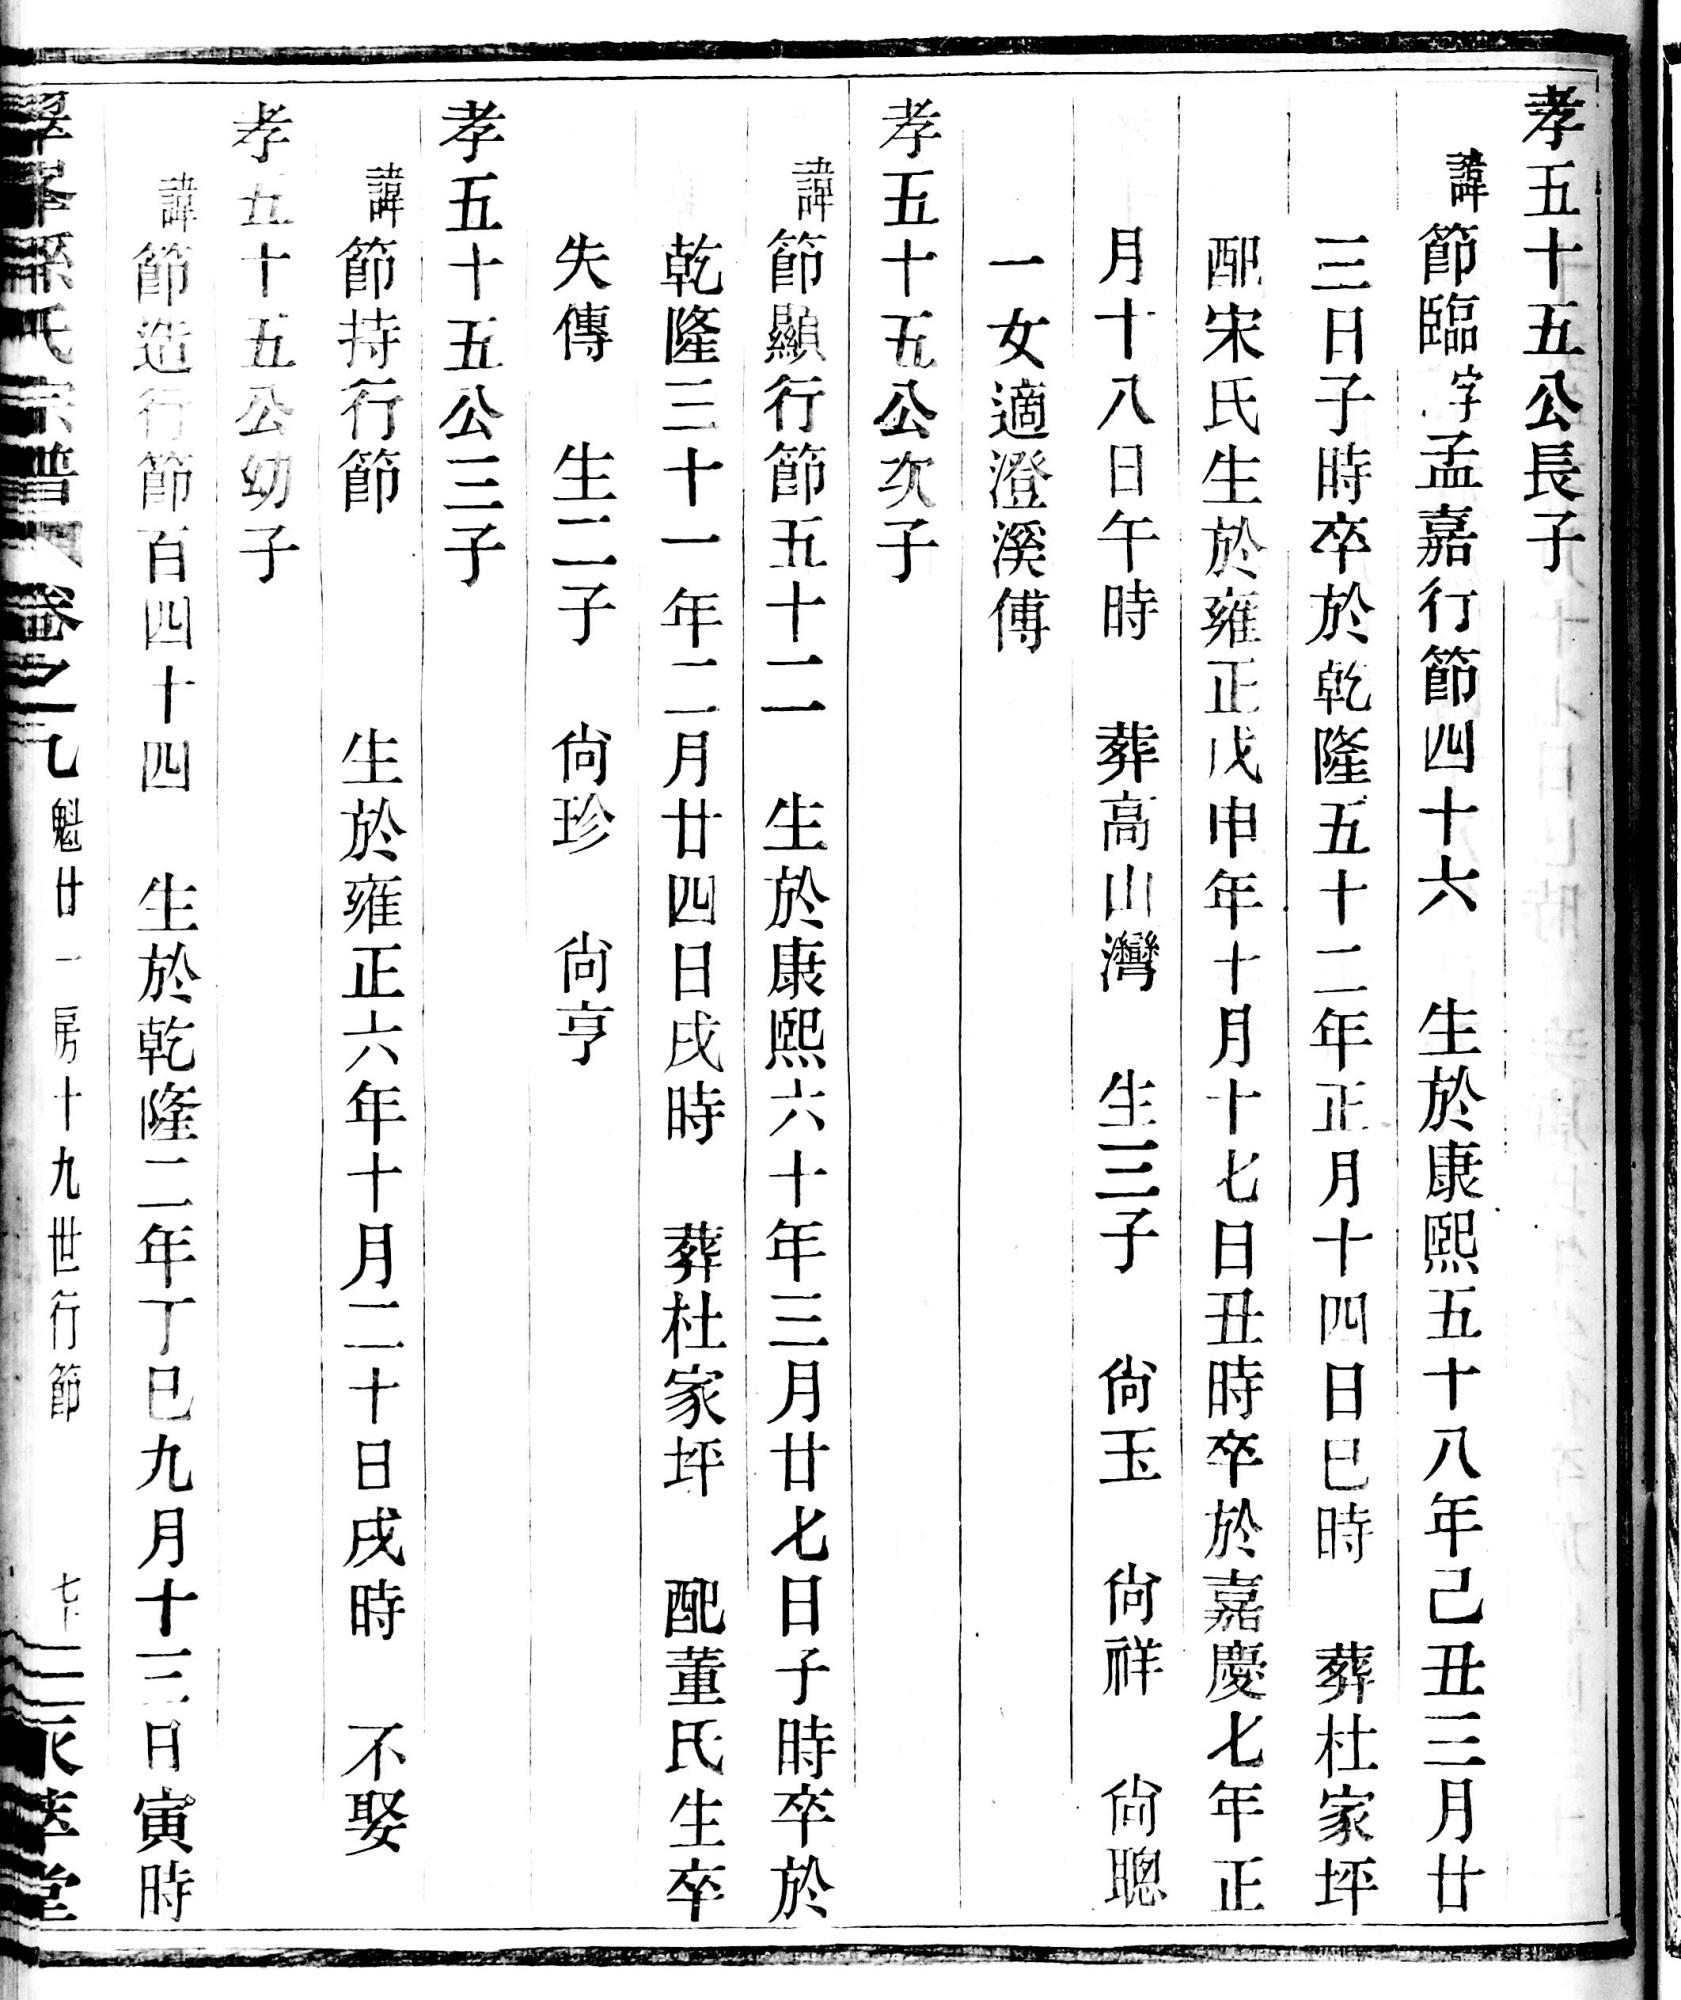 孝五十五公長子
諱節臨字孟嘉行節四十六　生於康熙五十八年己丑三月廿
三日子時卒於乾隆五十二年正月十四日巳時　葬杜家坪
配宋氏生於雍正戊申年十月十七日丑時卒於嘉慶七年正
月十八日午時　葬高山灣　生三子　尙玉　尙祥　尙聰
一女適澄溪傅
孝五十五公次子
諱節顯行節五十二　生於康熙六十年三月廿七日子時卒於
乾隆三十一年二月廿四日戌時　葬杜家坪　配董氏生卒
失傳　生二子　尙珍　尙亨
孝五十五公三子
諱節持行節　　生於雍正六年十月二十日戌時　不娶
孝五十五公幼子
諱節造行節百四十四　生於乾隆二年丁巳九月十三日寅時
孫氏宗譜　卷之九　魁廿一房十九世行節　七十二　萃堂